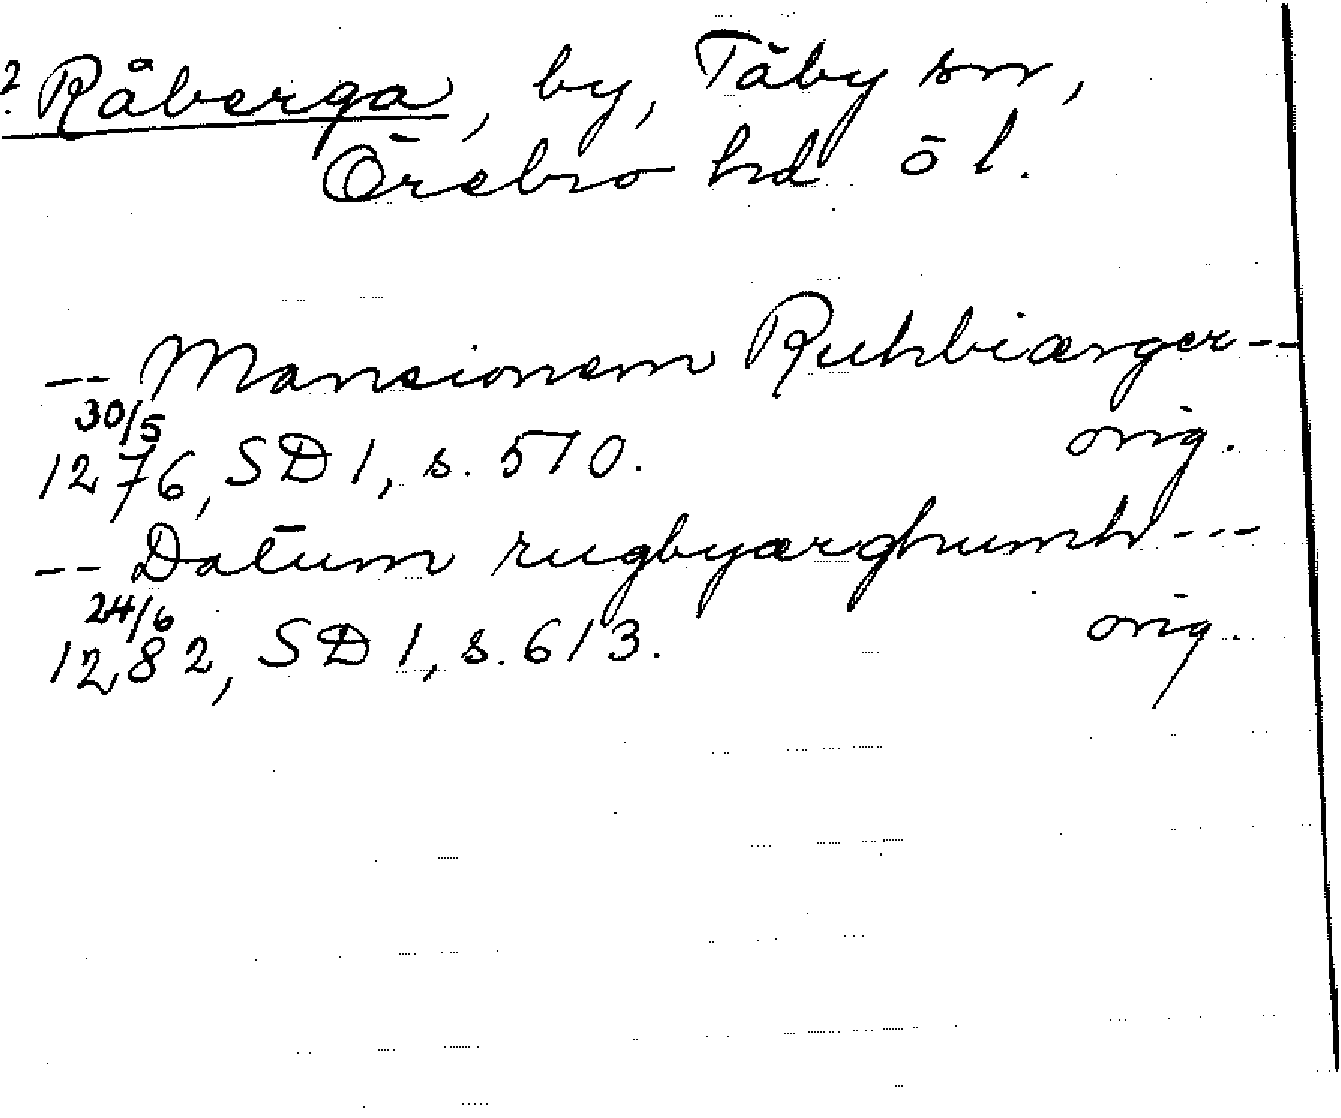 ? Råberga, by, Täby sn,
Örebro hd Öl.
-- Mansionem Ruhbiærger --
30/5 1276, SD 1, s. 510. orig.
-- Datum rugbyærghumh ---
24/6 1282, SD 1, s. 613. orig.